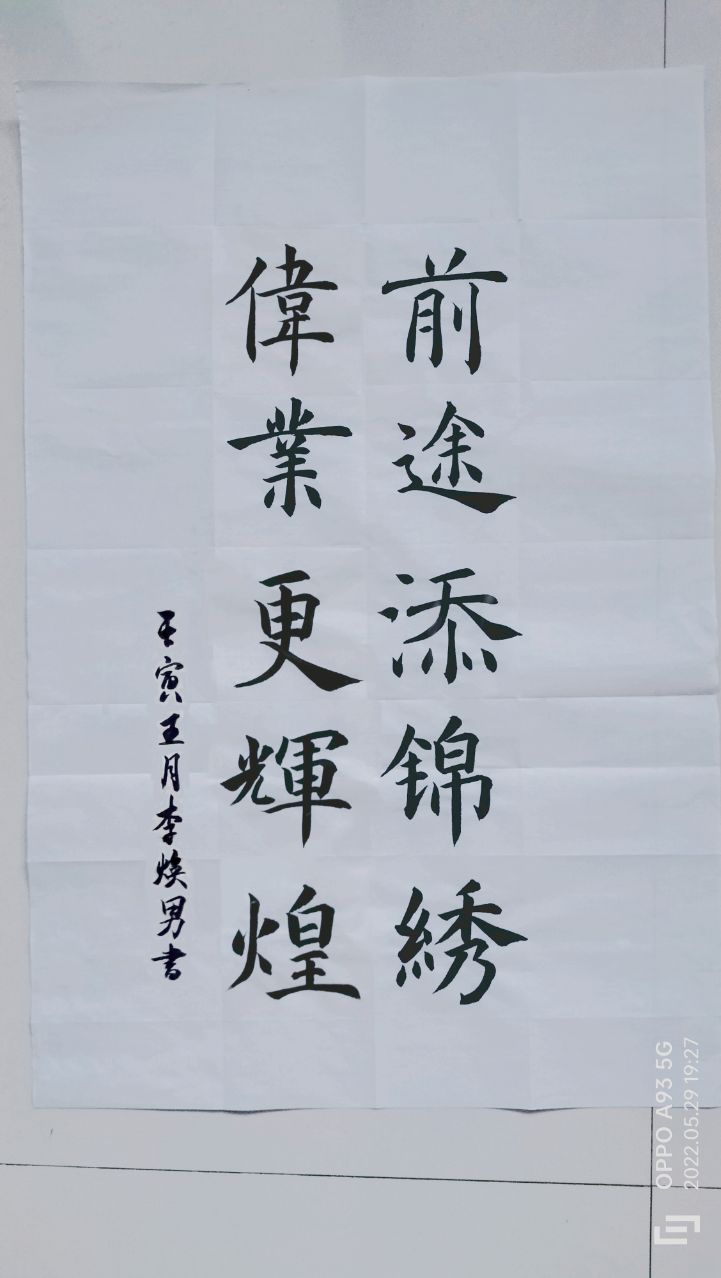 前途添锦綉
偉業更輝煌
壬寅王月李焕男書
OPPO A93 5G
2022.05.29 19:27